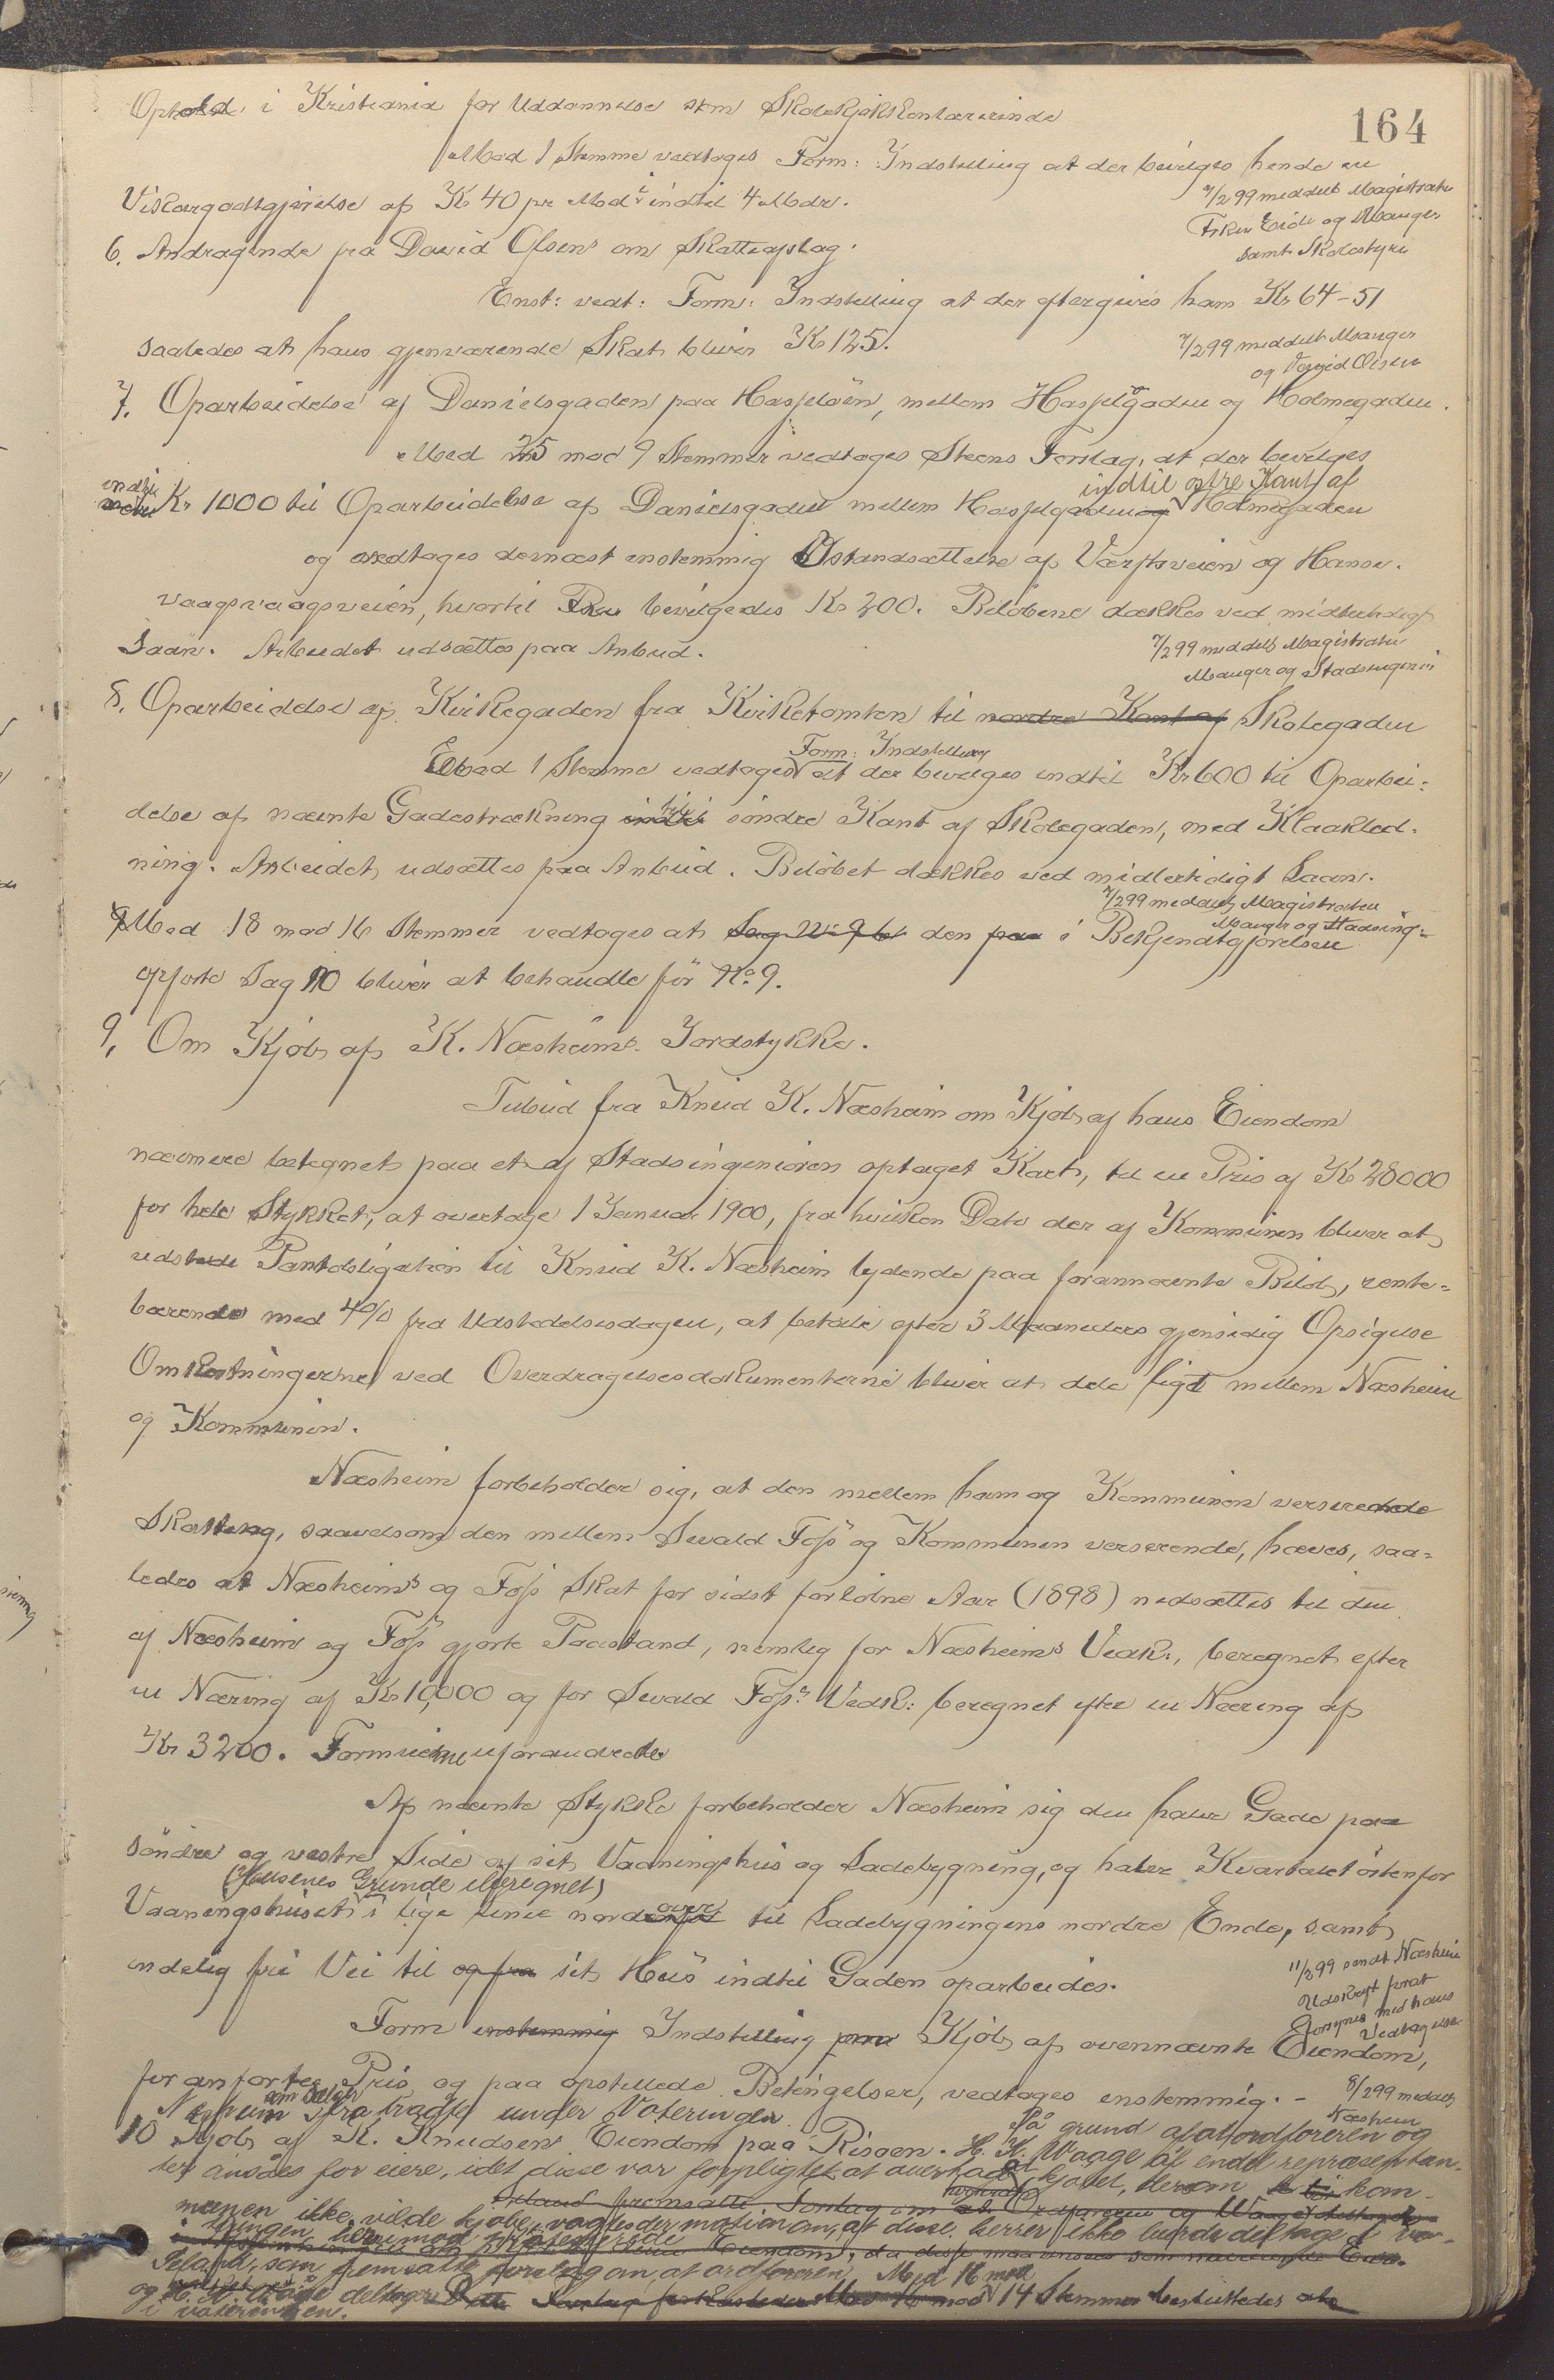 164
Ophold i Kristiania for Uddannelse som Skolekjøkkenlærerinde
Mod 1 Stemme vedtoges Form: Indstilling at der bevilges hende en
Vikargodtgjørelse af Kr 40 pr Md i indtil 4 Mdr.
7/2 99 meddelt Magistraten
Frkn Eide og Mauger
samt Skolestyre
6. Andragende fra David Olsen om Skatteafslag.
Enst: vedt: Form: Indstilling at der eftergives ham Kr 64-51
saaledes at hans gjenværende Skat bliver Kr 125.
7/2 99 meddelt Mauger
og David Olsen
7. Oparbeidelse af Danielsgaden paa Hasseløen, mellem Hasselgaden og Holmegaden.
Med 25 mod 9 Stemmer vedtoges Steens Forslag, at der bevilges
indtil Kr 1000 til Oparbeidelse af Danielsgaden mellem Hasselgaden og indtil østre Kant af Holmegaden
og vedtages dernæst enstemmig Istandsættelse af Værftsveien og Hanse-
vaagsvaagsveien, hvortil bevilgedes Kr 200. Beløbene dækkes ved midlertidigt
Laan. Arbeidet udsættes paa Anbud.
7/2 99 meddelt Magistraten
Mauger og Stadsingeniø
8. Oparbeidelse af Kirkegaden fra Kirketomten til nordre Kant af Skolegaden
Mod 1 Stemme vedtoges Form: Indstilling at der bevilges indtil Kr 600 til Oparbei-
delse af nævnte Gadestrækning til søndre Kant af Skolegaden, med Kloakled-
ning. Arbeidet udsættes paa Anbud. Beløbet dækkes ved midlertidigt Laan.
7/2 99 meddelt Magistraten
Mauger og Stadsing-
Med 18 mod 16 Stemmer vedtoges at den i Bekjendtgjørelsen
opførte Sag 10 bliver at behandle før No. 9.
9. Om Kjøb af K. Næsheims Jordstykke.
Tilbud fra Knud K. Næsheim om Kjøb af hans Eiendom
nærmere betegnet paa et af Stadsingeniøren optaget Kart, til en Pris af Kr 28000
for hele Stykket, at overtage 1 Januar 1900, fra hvilken Dato der af Kommunen bliver at
udstede Pantobligation til Knud K. Næsheim lydende paa forannævnte Beløb, rente-
bærende med 4% fra Udstedelsesdagen, at betale efter 3 Maaneders gjensidig Opsigelse
Omkostningerne ved Overdragelsesdokumenterne bliver at dele ligt mellem Næsheim
og Kommunen.
Næsheim forbeholder sig, at den mellem ham og Kommunen verserende
Skattesag, saavelsom den mellem Sevald Foss og Kommunen verserende, hæves, saa-
ledes at Næsheims og Foss Skat for sidst forløbne Aar (1898) nedsættes til den
af Næsheim og Foss gjorte Paastand, nemlig for Næsheims Vedk:, beregnet efter
en Næring af Kr 10,000 og for Sevald Foss's Vedk: beregnet efter en Næring af
Kr 3200. Formuerne uforandrede
Af nævnte Stykke forbeholder Næsheim sig den halve Gade paa
søndre og vestre Side af sit Vaaningshus og Ladebygning, og halve Kvartalet østenfor
(Husenes Grunde iberegnet)
Vaaningshuset i lige Linie nordover til Ladebygningens nordre Ende, samt
endelig fri Vei til og fra sit Hus indtil Gaden oparbeides.
11/2 99 sendt Næsheim
Udskrift forat
forsynes med hans
Vedtagelse
Form enstemmig Indstilling paa Kjøb af ovennævnte Eiendom,
for anførte Pris og paa opstillede Betingelser, vedtages enstemmig. -
8/2 99 meddelt
Næsheim
Næsheim fratraadte under Voteringen
10 Kjøb af K. Knudsens Eiendom paa Risøen. På grund af at ordføreren og
H. K. Waage af endel repræsentan-
ter ansåes for eiere, idet disse var forpligtet at overtage kjøbet, dersom kom-
munen ikke vilde kjøbe, vagtes der motion om, at disse herrer ikke burde deltage i vo-
teringen. Herimod protesterede
som fremsatte forslag om, at ordføreren
og H. K. Waage deltager Med 16 mod 14 Stemmer besluttedes
i voteringen.